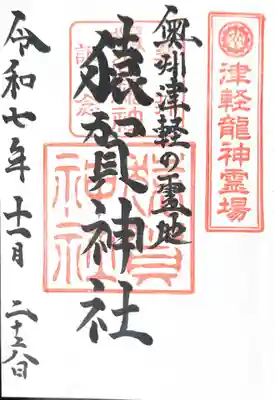 津軽龍神霊場
奥州津軽の霊地
猿賀神社
令和七年十一月二十六日